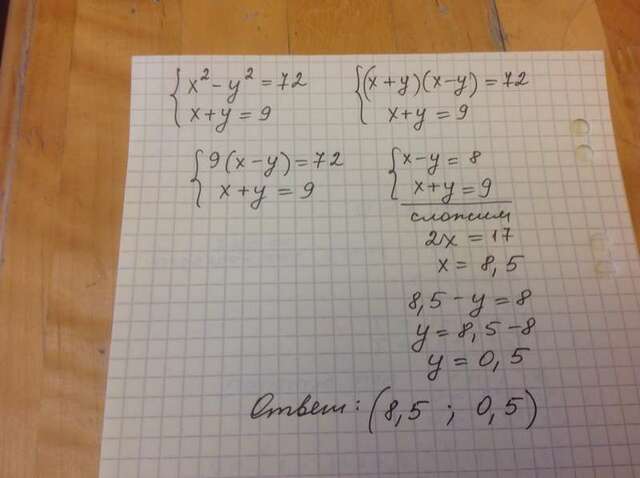 x² - y² = 72
x + y = 9
(x + y)(x - y) = 72
x + y = 9
9(x - y) = 72
x + y = 9
x - y = 8
x + y = 9
сложим
2x = 17
x = 8,5
8,5 - y = 8
y = 8,5 - 8
y = 0,5
Ответ: (8,5 ; 0,5)